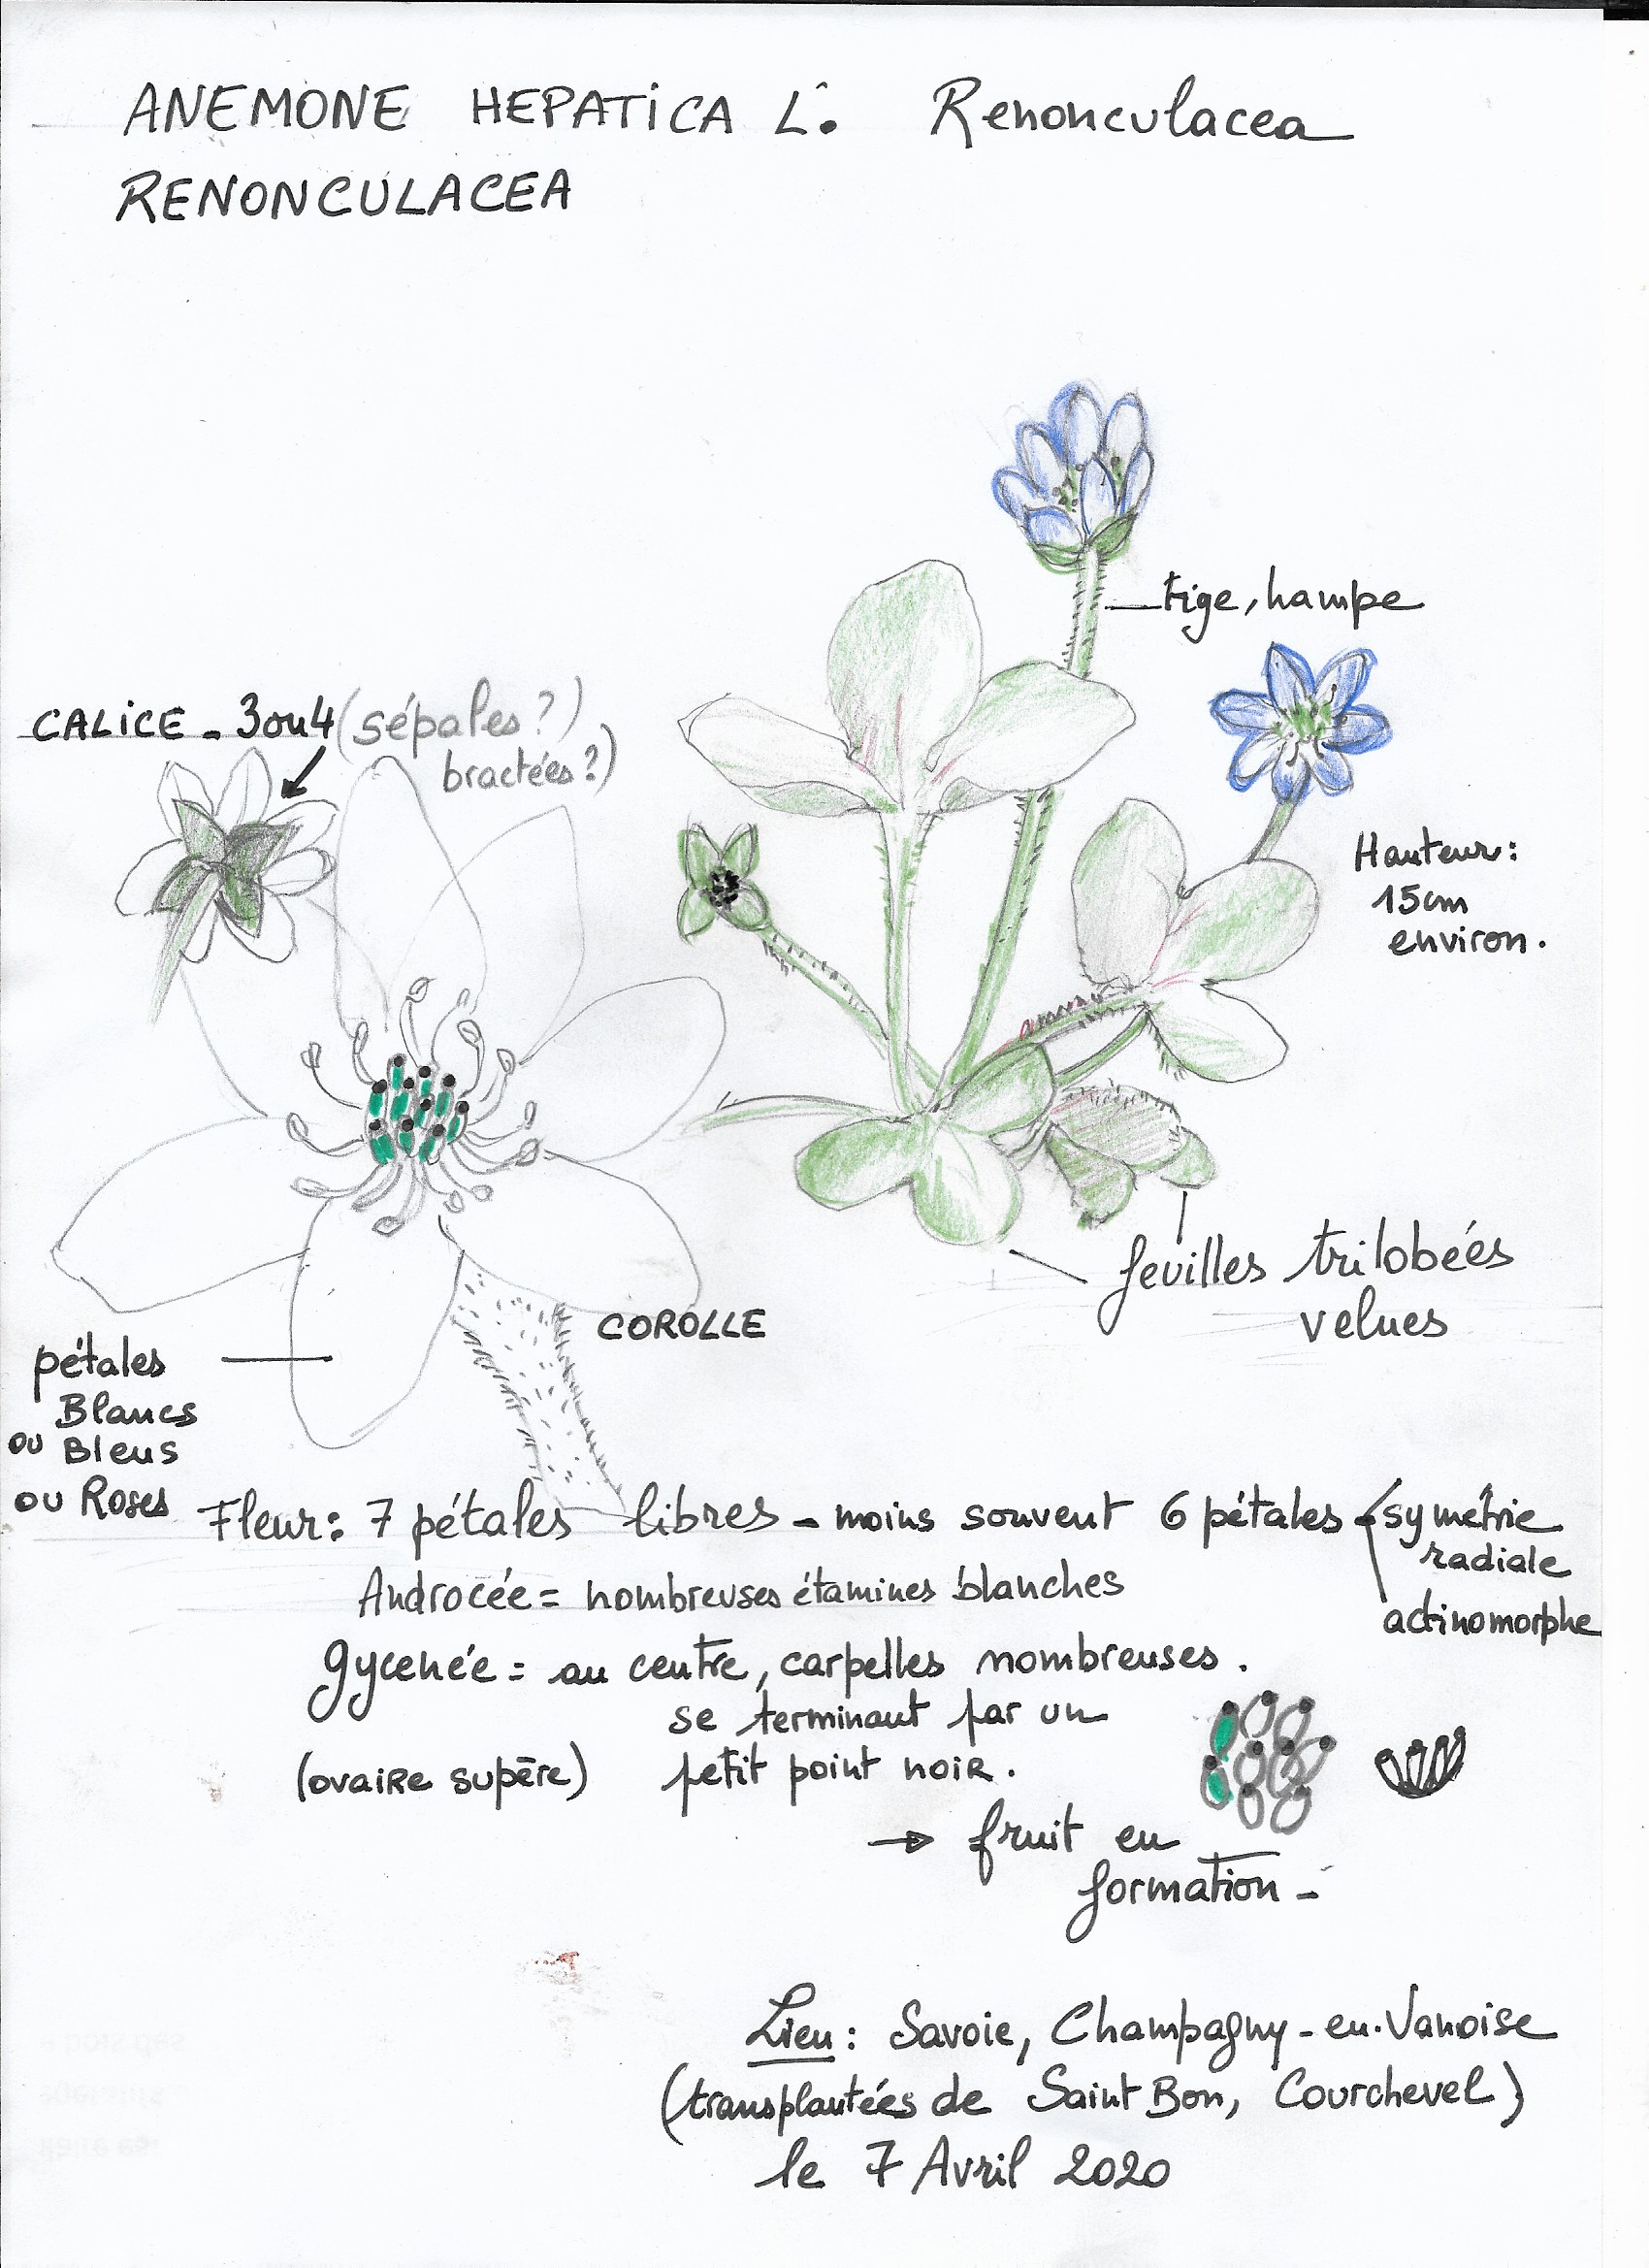 ANEMONE HEPATICA L. Renonculacea
RENONCULACEA
tige, hampe
CALICE - 3 ou 4 (sépales ?)
bractées ?)
Hauteur :
15cm
environ.
feuilles trilobées
velues
COROLLE
pétales
Blancs
ou Bleus
ou Roses
Fleur : 7 pétales libres - moins souvent 6 pétales - symétrie
radiale
actinomorphe
Androcée = nombreuses étamines blanches
gycenée = au centre, carpelles nombreuses.
se terminant par un
(ovaire supère) petit point noir.
→ fruit en
formation -
Lieu : Savoie, Champagny-en-Vanoise
(transplantées de Saint Bon, Courchevel)
le 7 Avril 2020